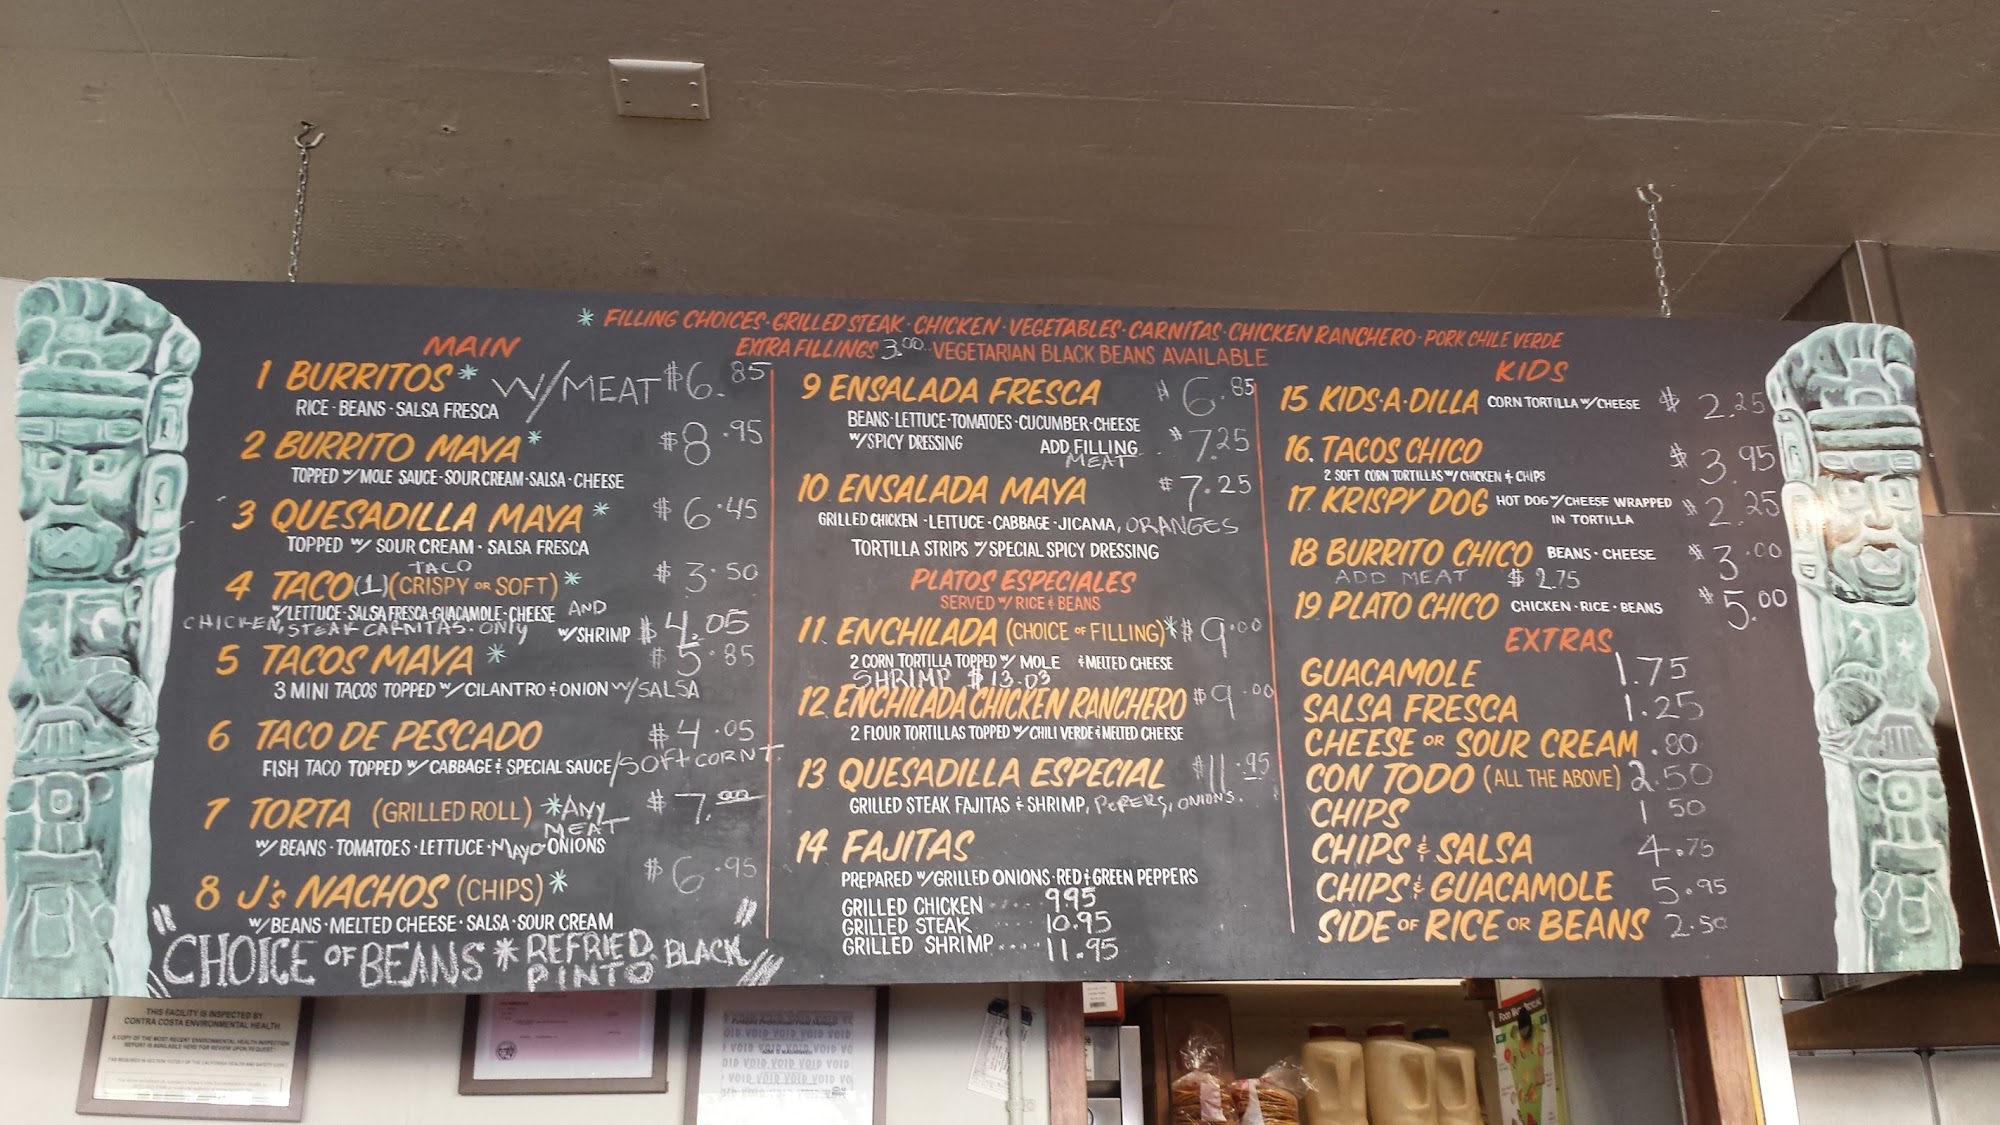 * FILLING CHOICES · GRILLED STEAK · CHICKEN · VEGETABLES · CARNITAS · CHICKEN RANCHERO · PORK CHILE VERDE
EXTRA FILLINGS 3.00 VEGETARIAN BLACK BEANS AVAILABLE
MAIN
1 BURRITOS * W/MEAT $6.85
RICE · BEANS · SALSA FRESCA
2 BURRITO MAYA * $8.95
TOPPED W/ MOLE SAUCE · SOUR CREAM · SALSA · CHEESE
3 QUESADILLA MAYA * $6.45
TOPPED W/ SOUR CREAM · SALSA FRESCA
TACO
4 TACO (1) (CRISPY OR SOFT) * $3.50
W/LETTUCE · SALSA FRESCA · GUACAMOLE · CHEESE AND
CHICKEN, STEAK CARNITAS. ONLY W/SHRIMP $4.05
5 TACOS MAYA * $5.85
3 MINI TACOS TOPPED W/ CILANTRO & ONION W/SALSA
6 TACO DE PESCADO $4.05
FISH TACO TOPPED W/ CABBAGE & SPECIAL SAUCE/SOFT CORN T.
7 TORTA (GRILLED ROLL) *ANY MEAT $7.00
W/ BEANS · TOMATOES · LETTUCE · MAYO · ONIONS
8 J's NACHOS (CHIPS) * $6.95
W/BEANS · MELTED CHEESE · SALSA · SOUR CREAM
"CHOICE OF BEANS * REFRIED. BLACK"
PINTO
9 ENSALADA FRESCA $6.85
BEANS · LETTUCE · TOMATOES · CUCUMBER · CHEESE
W/SPICY DRESSING ADD FILLING $7.25
MEAT
10 ENSALADA MAYA $7.25
GRILLED CHICKEN · LETTUCE · CABBAGE · JICAMA, ORANGES
TORTILLA STRIPS W/ SPECIAL SPICY DRESSING
PLATOS ESPECIALES
SERVED W/ RICE & BEANS
11 ENCHILADA (CHOICE OF FILLING) * $9.00
2 CORN TORTILLA TOPPED W/ MOLE & MELTED CHEESE
SHRIMP $13.03
12 ENCHILADA CHICKEN RANCHERO $9.00
2 FLOUR TORTILLAS TOPPED W/ CHILI VERDE & MELTED CHEESE
13 QUESADILLA ESPECIAL $11.95
GRILLED STEAK FAJITAS & SHRIMP, PEPERS, ONIONS.
14 FAJITAS
PREPARED W/GRILLED ONIONS · RED & GREEN PEPPERS
GRILLED CHICKEN .... 9.95
GRILLED STEAK .... 10.95
GRILLED SHRIMP .... 11.95
KIDS
15 KIDS·A·DILLA CORN TORTILLA W/CHEESE $2.25
16. TACOS CHICO $3.95
2 SOFT CORN TORTILLAS W/ CHICKEN & CHIPS
17. KRISPY DOG HOT DOG W/CHEESE WRAPPED $2.25
IN TORTILLA
18 BURRITO CHICO BEANS · CHEESE $3.00
ADD MEAT $2.75
19 PLATO CHICO CHICKEN · RICE · BEANS $5.00
EXTRAS
GUACAMOLE 1.75
SALSA FRESCA 1.25
CHEESE OR SOUR CREAM .80
CON TODO (ALL THE ABOVE) 2.50
CHIPS 1 50
CHIPS & SALSA 4.75
CHIPS & GUACAMOLE 5.95
SIDE OF RICE OR BEANS 2.50
THIS FACILITY IS INSPECTED BY
CONTRA COSTA ENVIRONMENTAL HEALTH.
A COPY OF THE MOST RECENT ENVIRONMENTAL HEALTH INSPECTION
REPORT IS AVAILABLE HERE FOR REVIEW UPON REQUEST